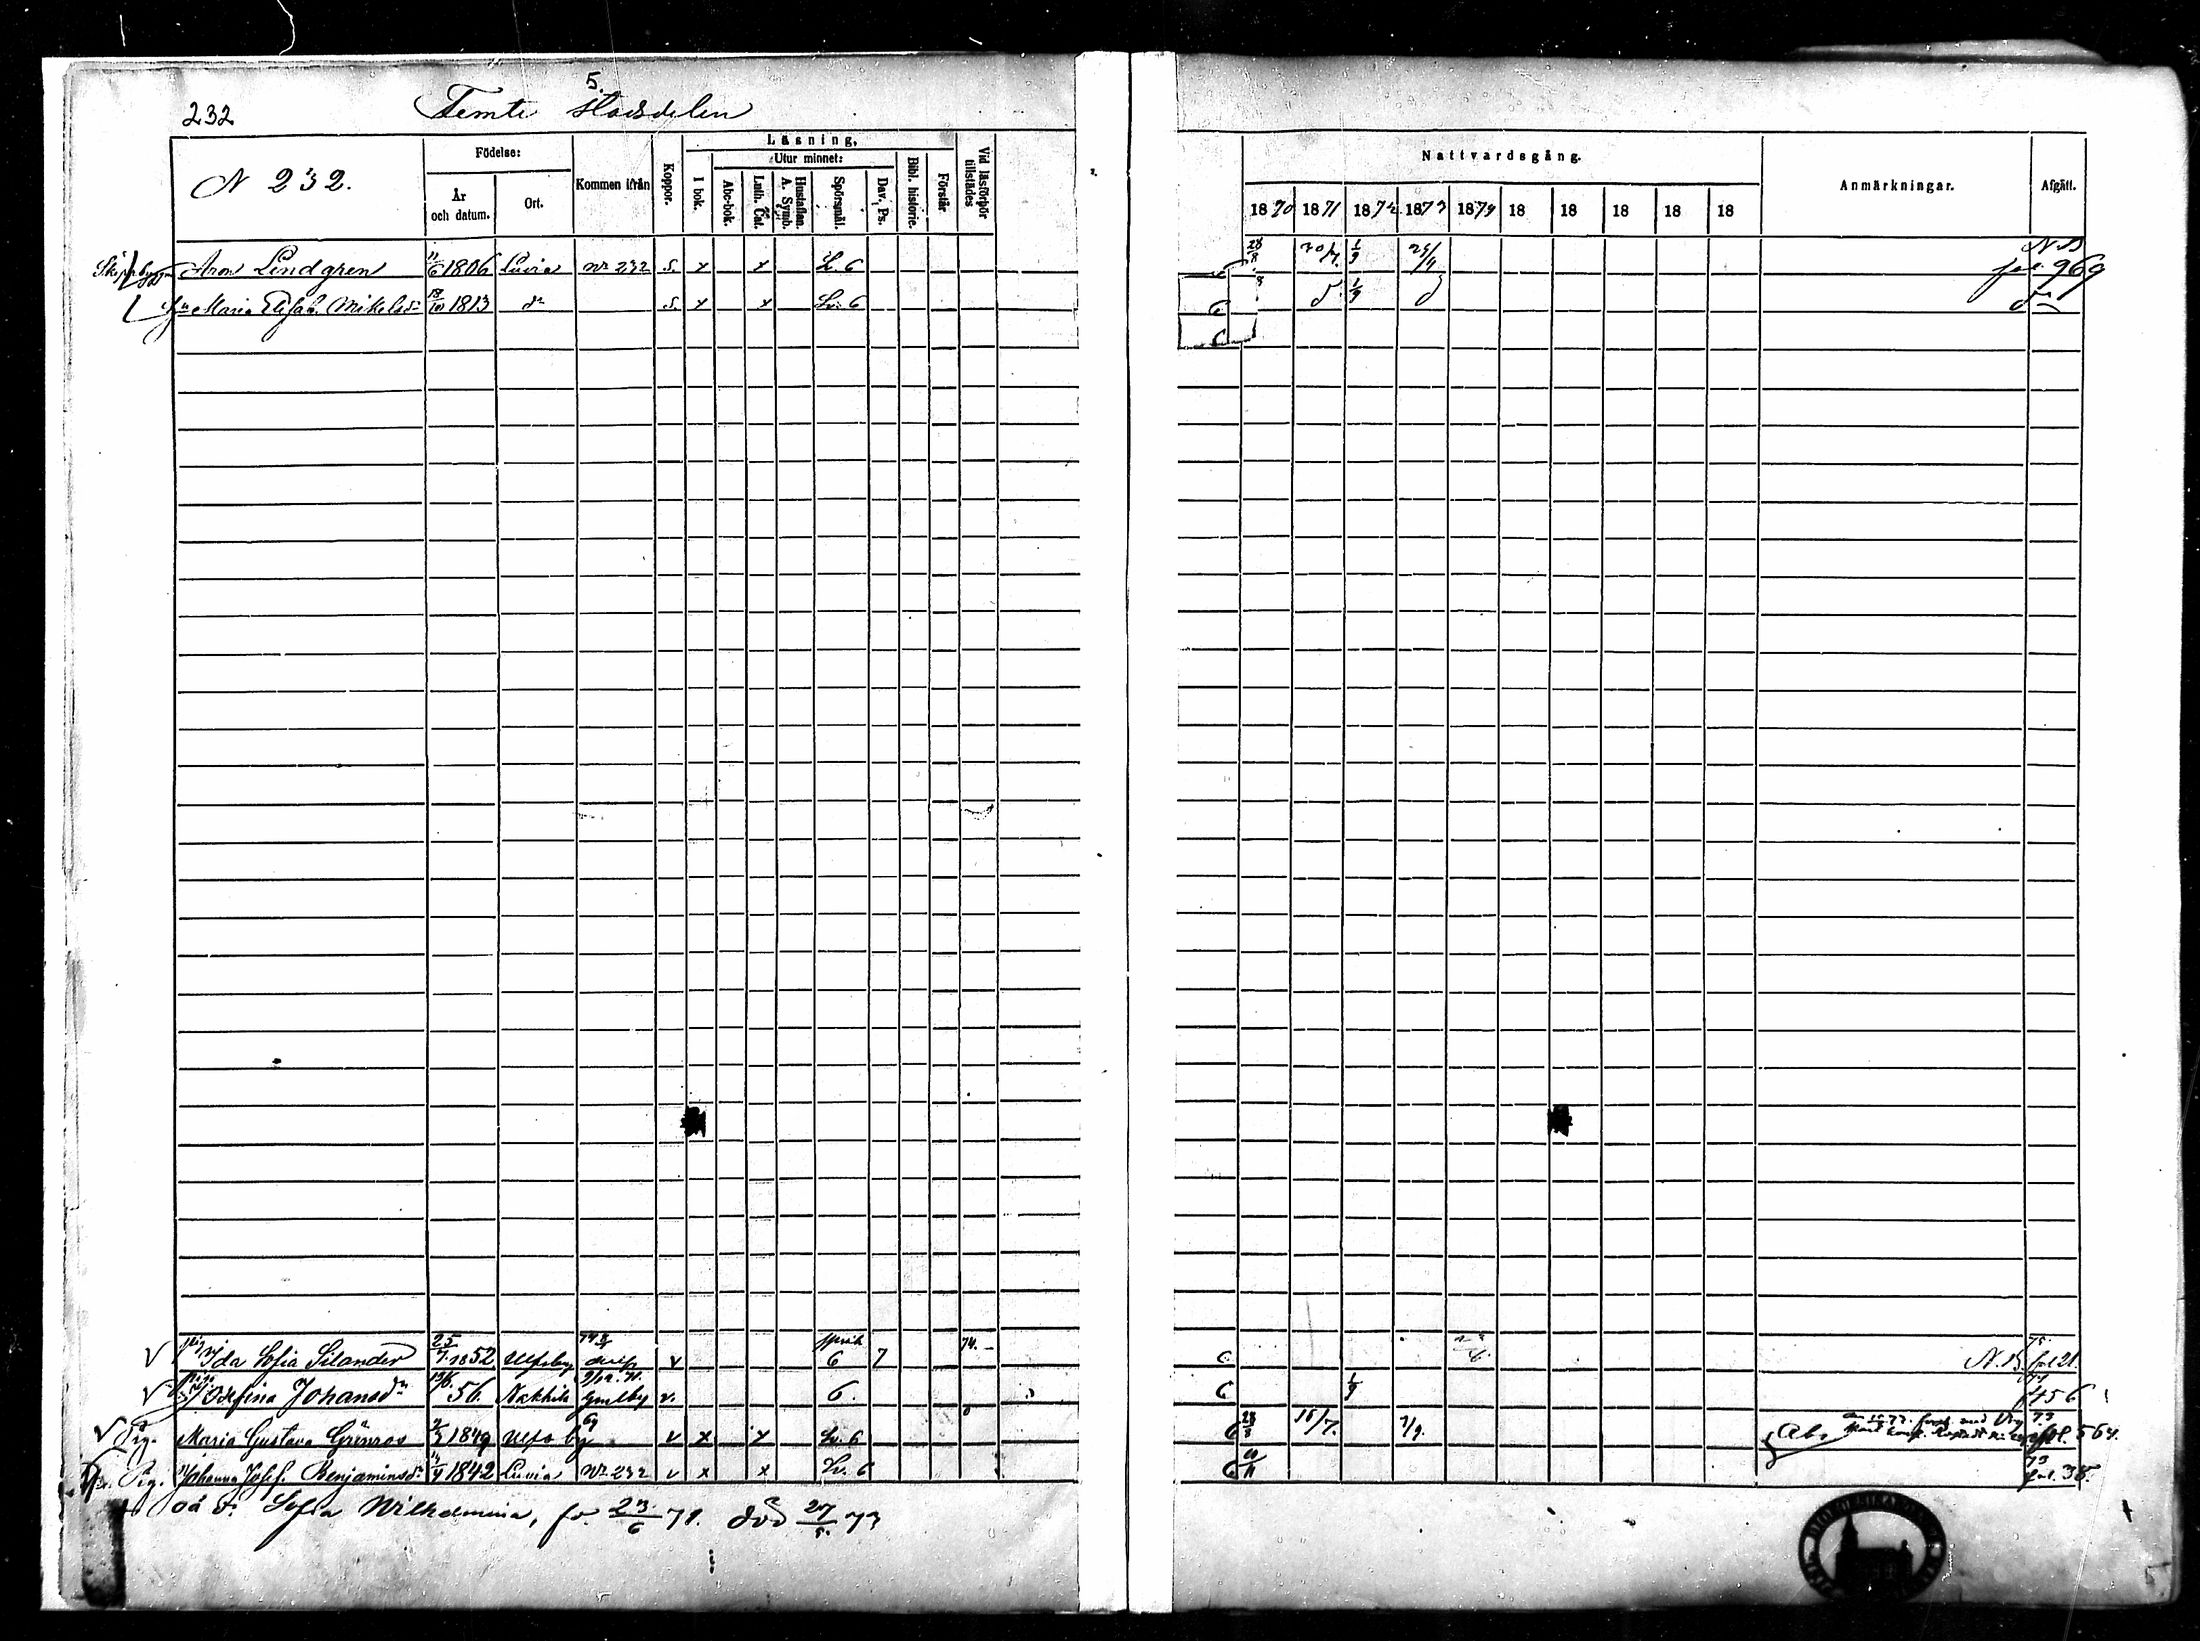 232 5. Femte stadsdelen
Läsning,
Födelse: Utur minnet:
N 232. Kommen ifrån Koppor. I bok. Abc-bok. Luth. Cat. Hustaflan. A. Symb. Spörsmål. Dav. Ps. Bibl. historie. Förstår Vid läsförhör tillstädes
År och datum. Ort.
Nattvardsgång. Anmärkningar. Afgått.
1870 1871 1872 1873 1874 18 18 18 18 18
Aron Lindgren 11/6 1806 Luvia No 232 s. x x L. 6 28/8 1/9 25/4 N B fol. 969
Maria Elisab. Mikelsd:r 18/10 1813 d:o s. x x Lv. 6 1/9 d:o
Ida Sofia Silander 25/7 1852 Ulfsby v 6 7 74. 75. N. B. fol 21.
Josefina Johansd:r 56. Nakkila v. 6. 1/9 f 456
Pig. Maria Gustava Grönros 1849 Ulfsby 69 v x x Lv. 6 28/8 15/7. 7/9. Abs 73 fol. 564.
Pig. Johanna Josef. Benjaminsd:r 1842 Luvia No 232 v x x Lv. 6 73 fol. 38.
oä d. Sofia Wilhelmina, fö. 23/6 71. död 27/5. 73